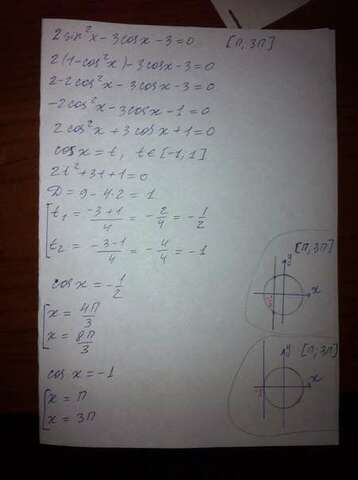 2sin²x - 3cosx - 3 = 0 [π, 3π]
2(1-cos²x) - 3cosx - 3 = 0
2-2cos²x - 3cosx - 3 = 0
-2cos²x - 3cosx - 1 = 0
2cos²x + 3cosx + 1 = 0
cosx = t, t∈[-1;1]
2t² + 3t + 1 = 0
D = 9 - 4·2 = 1
t₁ = (-3+1)/4 = -2/4 = -1/2
t₂ = (-3-1)/4 = -4/4 = -1
cosx = -1/2
x = 4π/3
x = 8π/3
cosx = -1
x = π
x = 3π
[π; 3π]
y
x
[π; 3π]
y
x
-1